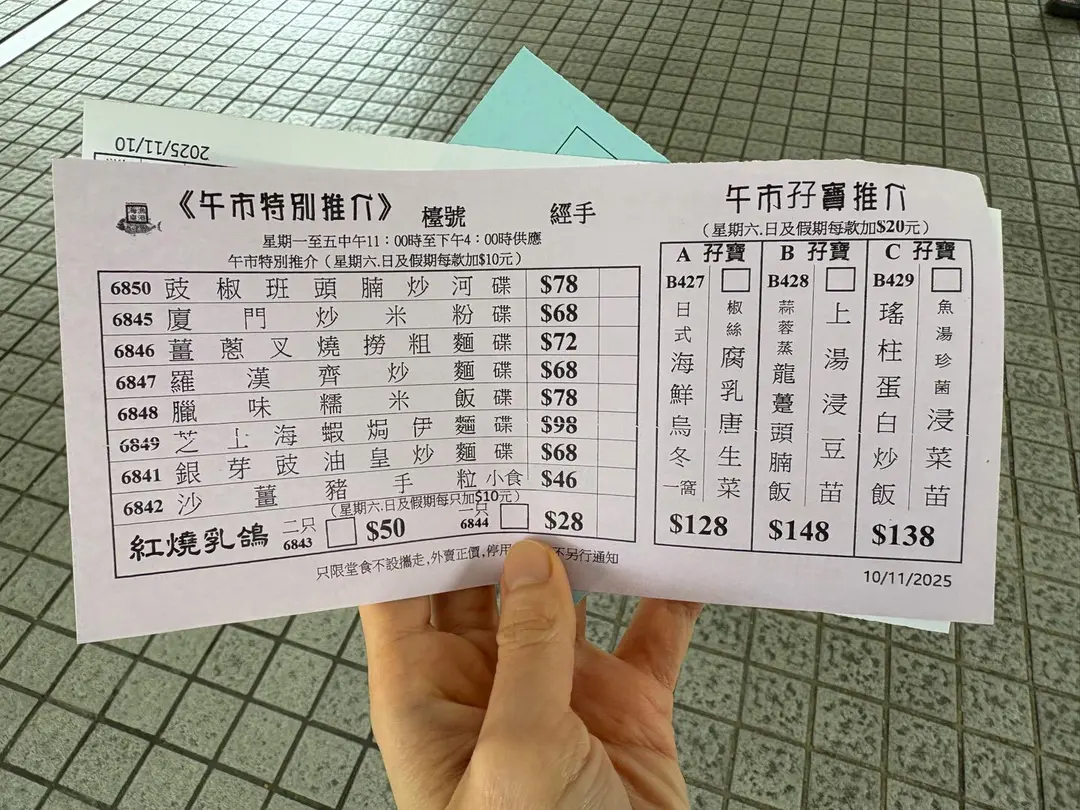 2025/11/10
《午市特別推介》 檯號 經手
星期一至五中午11：00時至下午4：00時供應
午市特別推介（星期六.日及假期每款加$10元）
6850 豉椒班頭腩炒河 碟 $78
6845 廈門炒米粉 碟 $68
6846 薑蔥叉燒撈粗麵 碟 $72
6847 羅漢齊炒麵 碟 $68
6848 臘味糯米飯 碟 $78
6849 芝士海蝦焗伊麵 碟 $98
6841 銀芽豉油皇炒麵 碟 $68
6842 沙薑豬手粒 小食 $46
（星期六.日及假期每只加$10元）
紅燒乳鴿 二只 6843 $50 一只 6844 $28
只限堂食不設攜走,外賣正價,停用 不另行通知
午市孖寶推介
（星期六.日及假期每款加$20元）
A 孖寶
B427
日式海鮮烏冬一窩
椒絲腐乳唐生菜
$128
B 孖寶
B428
蒜蓉蒸龍躉頭腩飯
上湯浸豆苗
$148
C 孖寶
B429
瑤柱蛋白炒飯
魚湯珍菌浸菜苗
$138
10/11/2025